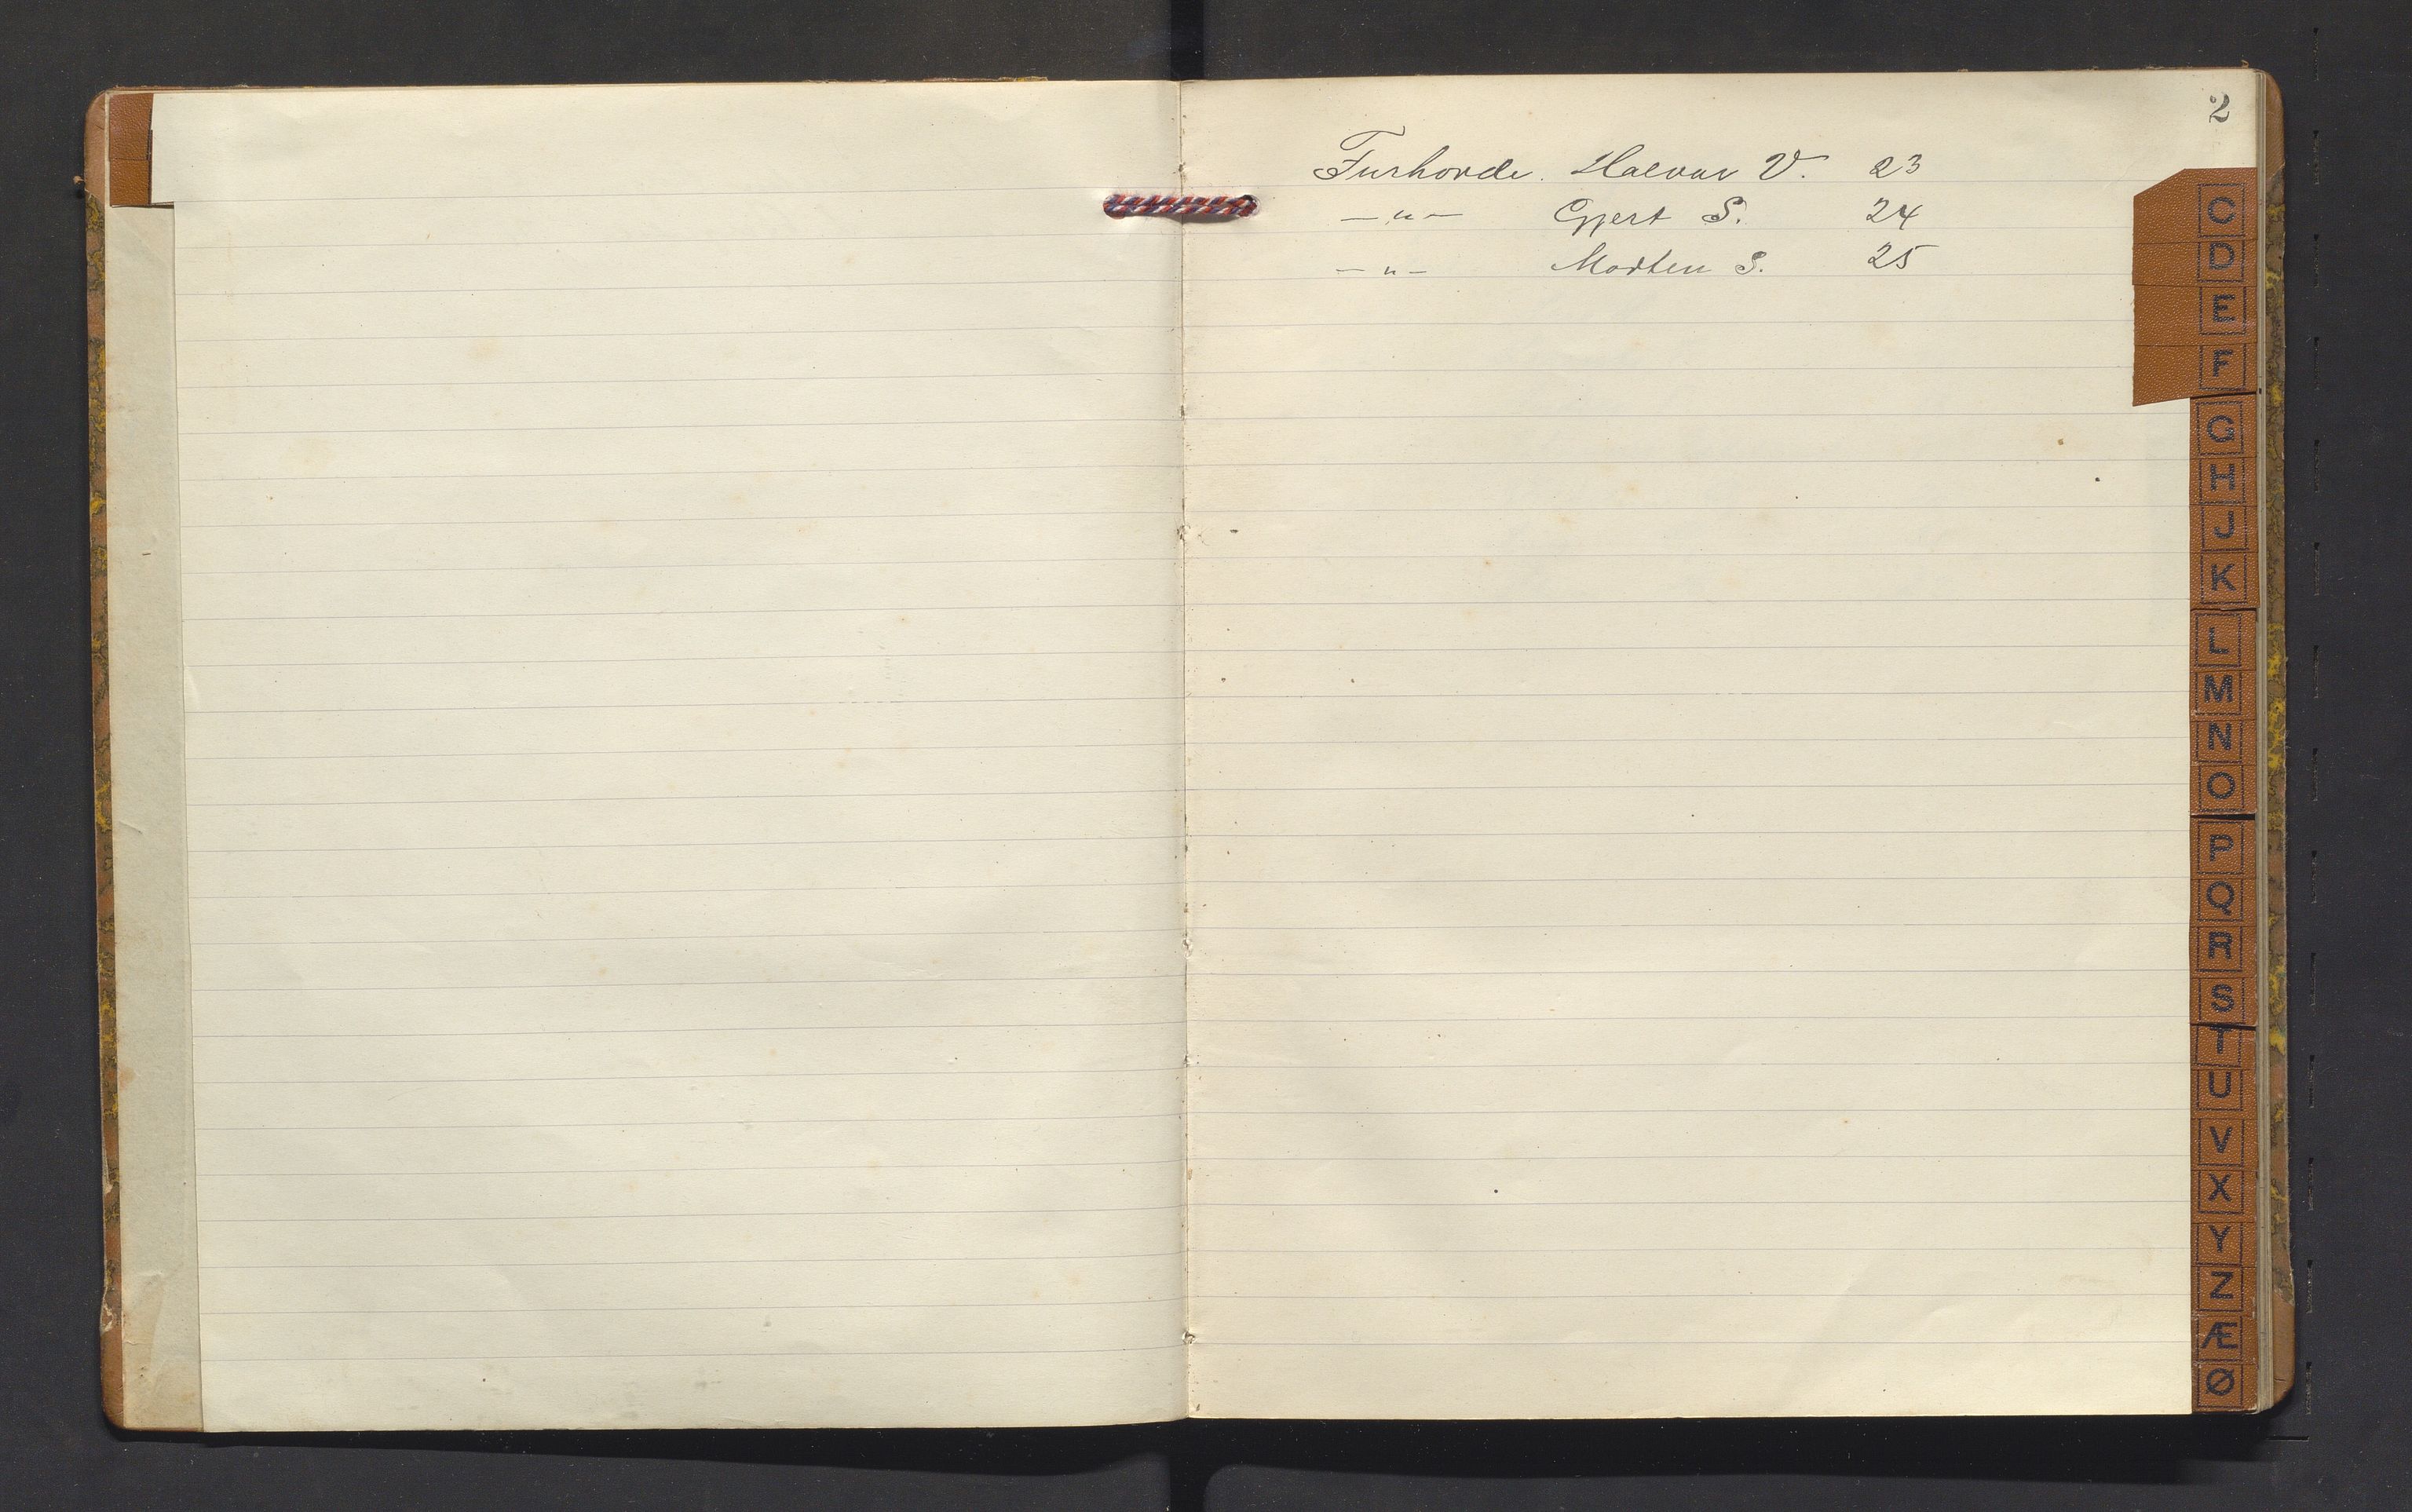 2
Furhovde. Halvar V. 23
—"— Gjert S. 24
—"— Morten S. 25
C
D
E
F
G
H
J
K
L
M
N
O
P
Q
R
S
T
U
V
X
Y
Z
Æ
Ø